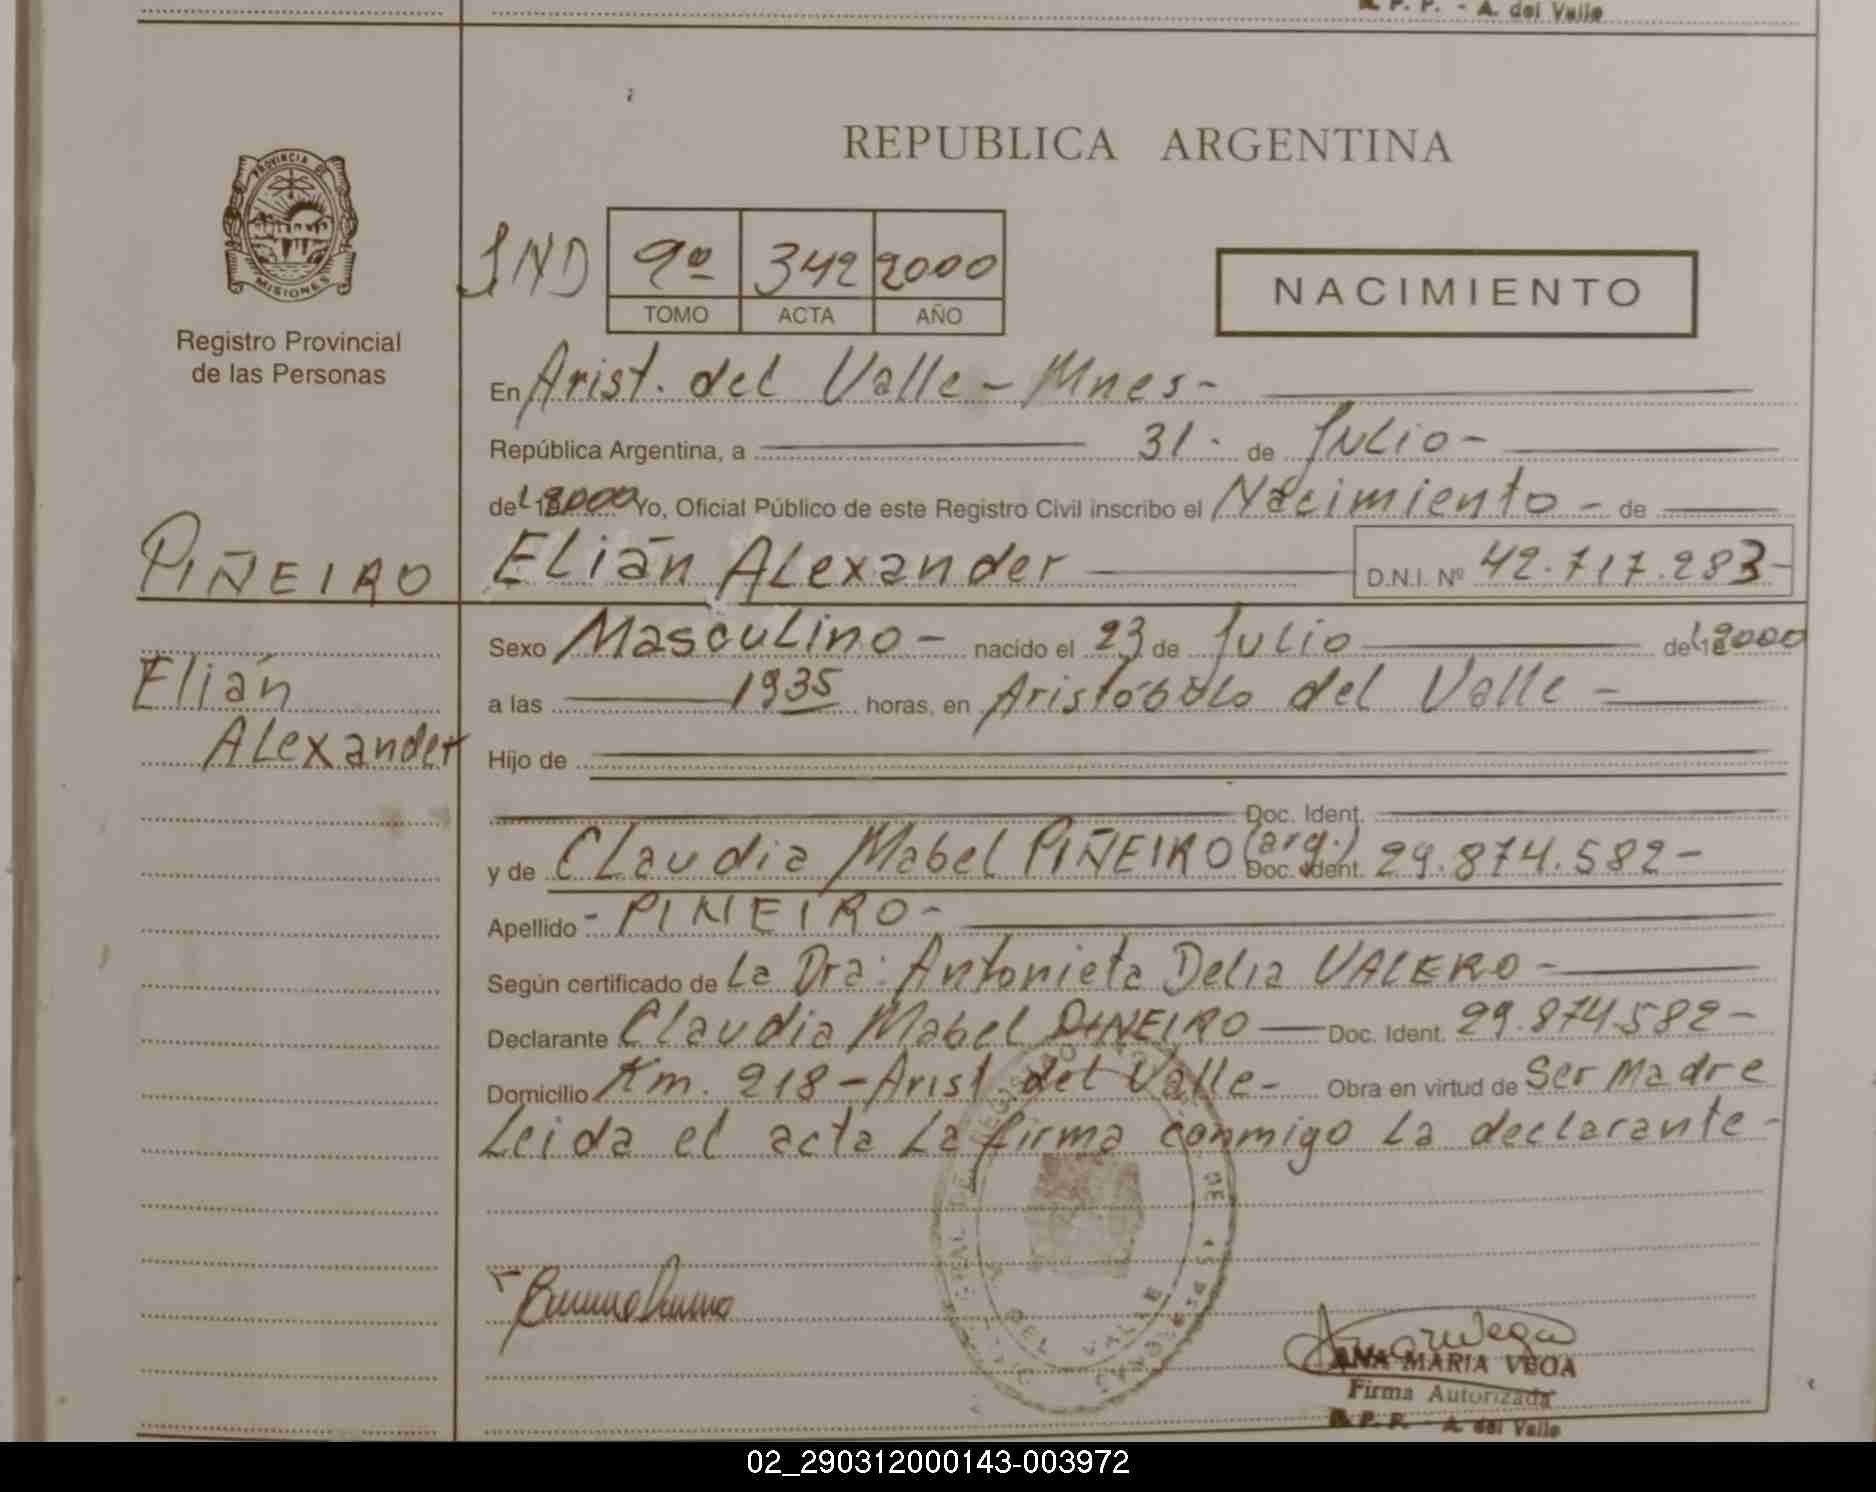 R. P. P. - A. del Valle
REPUBLICA ARGENTINA
PROVINCIA DE
MISIONES
Registro Provincial
de las Personas
IND 9º 342 2000
TOMO ACTA AÑO
NACIMIENTO
En Arist. del Valle - Mnes -
República Argentina, a 31 - de Julio -
del 2000 Yo, Oficial Público de este Registro Civil inscribo el Nacimiento - de
PIÑEIRO Elián Alexander D.N.I. Nº 42.717.283 -
Elián
Alexander
Sexo Masculino - nacido el 23 de Julio del 2000
a las 1935 horas, en Aristóbulo del Valle -
Hijo de
Doc. Ident.
y de Claudia Mabel PIÑEIRO (arg.) Doc. Ident. 29.874.582 -
Apellido - PIÑEIRO -
Según certificado de La Dra: Antonieta Delia VALERO -
Declarante Claudia Mabel PIÑEIRO Doc. Ident. 29.874.582 -
Domicilio Km. 218 - Arist del Valle - Obra en virtud de Ser Madre
Leida el acta La firma conmigo La declarante -
DEL VALLE
ANA MARIA VEGA
Firma Autorizada
R. P. P. - A. del Valle
02_290312000143-003972